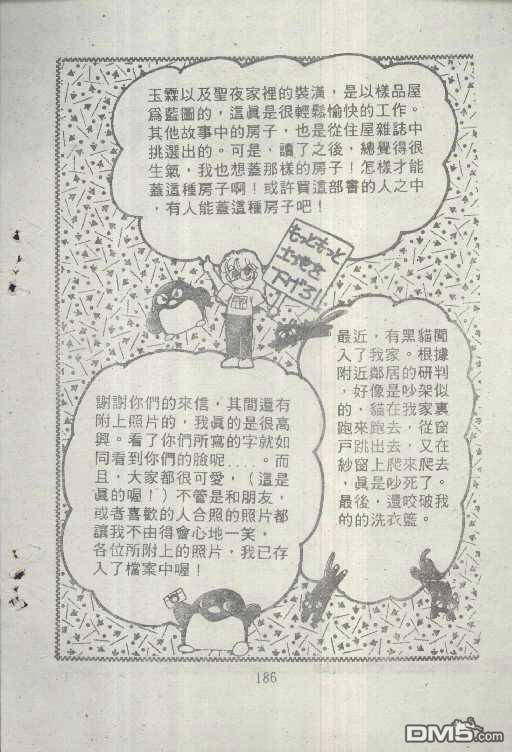 玉霖以及聖夜家裡的裝潢，是以樣品屋
爲藍圖的，這眞是很輕鬆愉快的工作。
其他故事中的房子，也是從住屋雜誌中
挑選出的。可是，讀了之後，總覺得很
生氣，我也想蓋那樣的房子！怎樣才能
蓋這種房子啊！或許買這部書的人之中
，有人能蓋這種房子吧！
もっともっと
土地を
下げろ!!
最近，有黑貓闖
入了我家。根據
附近鄰居的研判
，好像是吵架似
的，貓在我家裏
跑來跑去，從窗
戸跳出去，又在
紗窗上爬來爬去
，眞是吵死了。
最後，還咬破我
的的洗衣籃。
謝謝你們的來信，其間還有
附上照片的，我眞的是很高
興。看了你們所寫的字就如
同看到你們的臉呢....。而
且，大家都很可愛，（這是
眞的喔！）不管是和朋友，
或者喜歡的人合照的照片都
讓我不由得會心地一笑，
各位所附上的照片，我已存
入了檔案中喔！
186
DM5.com